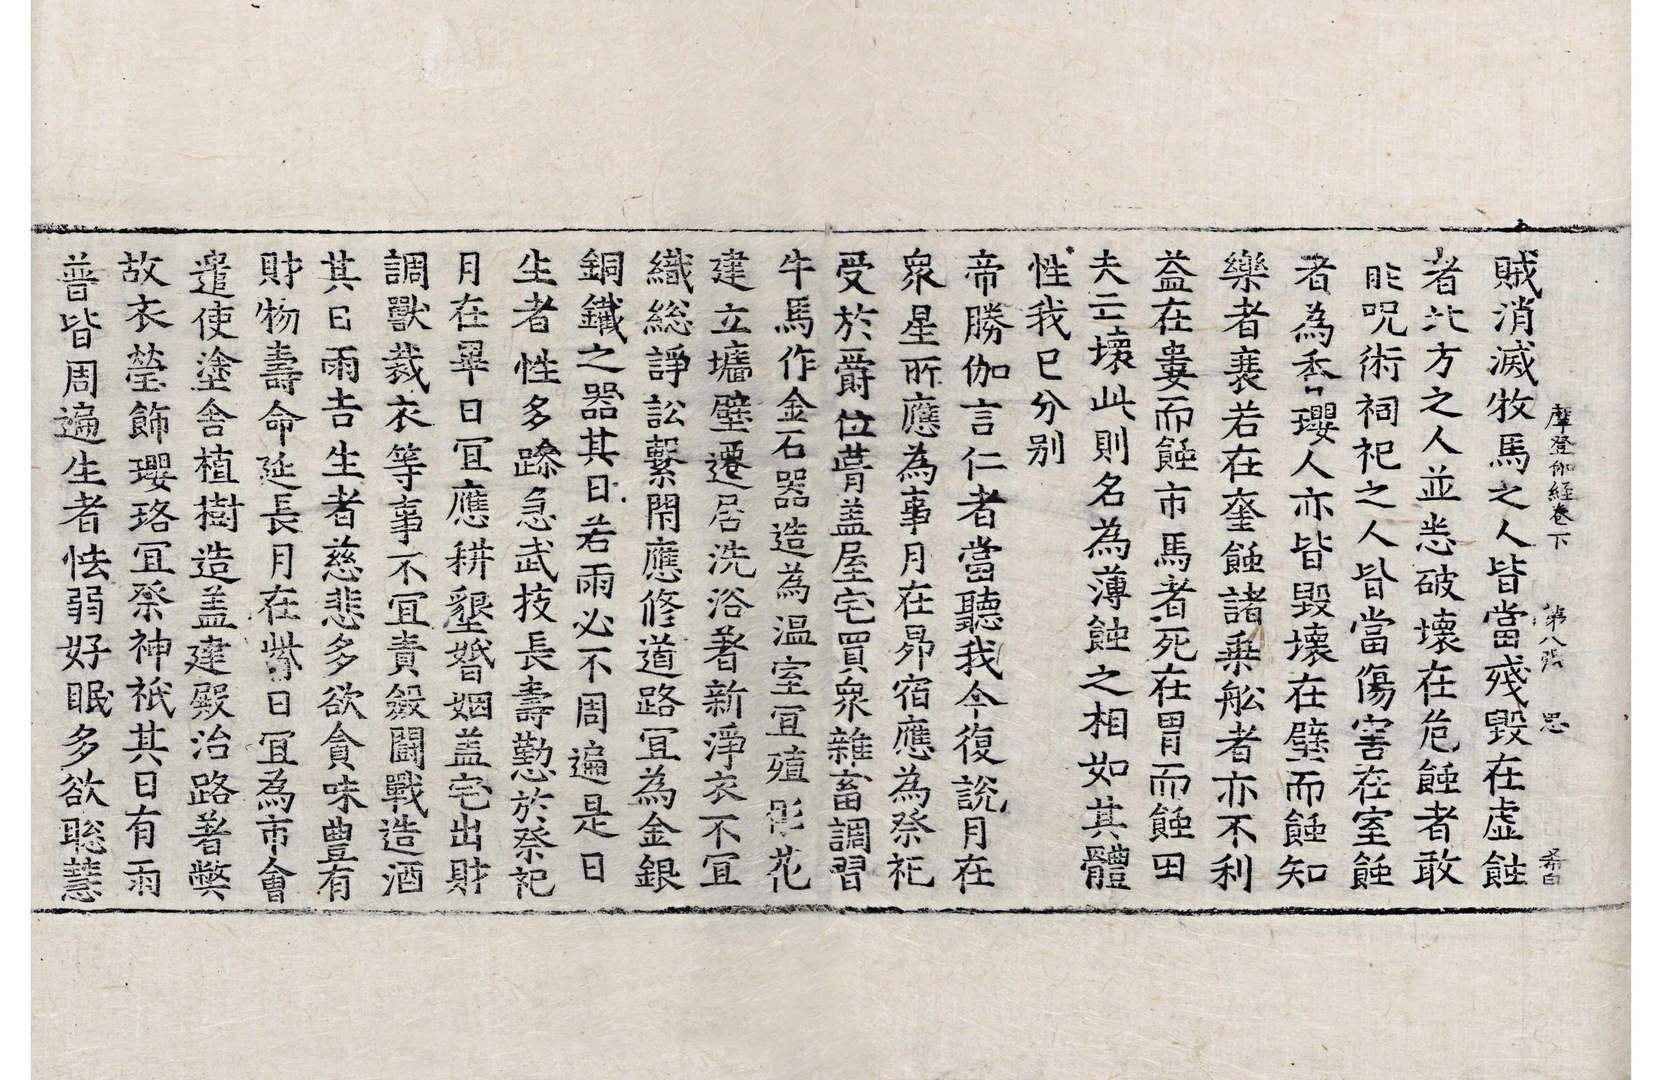 摩登伽經卷下 第八張 思 希白
賊消滅牧馬之人皆當殘毀在虛蝕
者北方之人並悉破壞在危蝕者敢
能呪術祠祀之人皆當傷害在室蝕
者為香瓔人亦皆毀壞在壁而蝕知
樂者衰若在奎蝕諸乗舩者亦不利
益在婁而蝕市馬者死在胃而蝕田
夫亡壞此則名為薄蝕之相如其體
性我已分别
帝勝伽言仁者當聽我今復說月在
衆星所應為事月在昴宿應為祭祀
受於爵位苫盖屋宅買衆雜畜調習
牛馬作金石器造為温室冝殖彫花
建立墻壁遷居洗浴著新淨衣不冝
織総諍訟繫閇應修道路冝為金銀
銅鐵之器其日若雨必不周遍是日
生者性多躁急武技長壽勤於祭祀
月在畢日冝應耕墾婚姻盖宅出財
調獸裁衣等事不冝責斂鬪戰造酒
其日雨吉生者慈悲多欲貪味豊有
財物壽命延長月在觜日冝為市會
遣使塗舎植樹造盖建殿治路著弊
故衣瑩飾瓔珞冝祭神祇其日有雨
普皆周遍生者怯弱好眠多欲聡慧